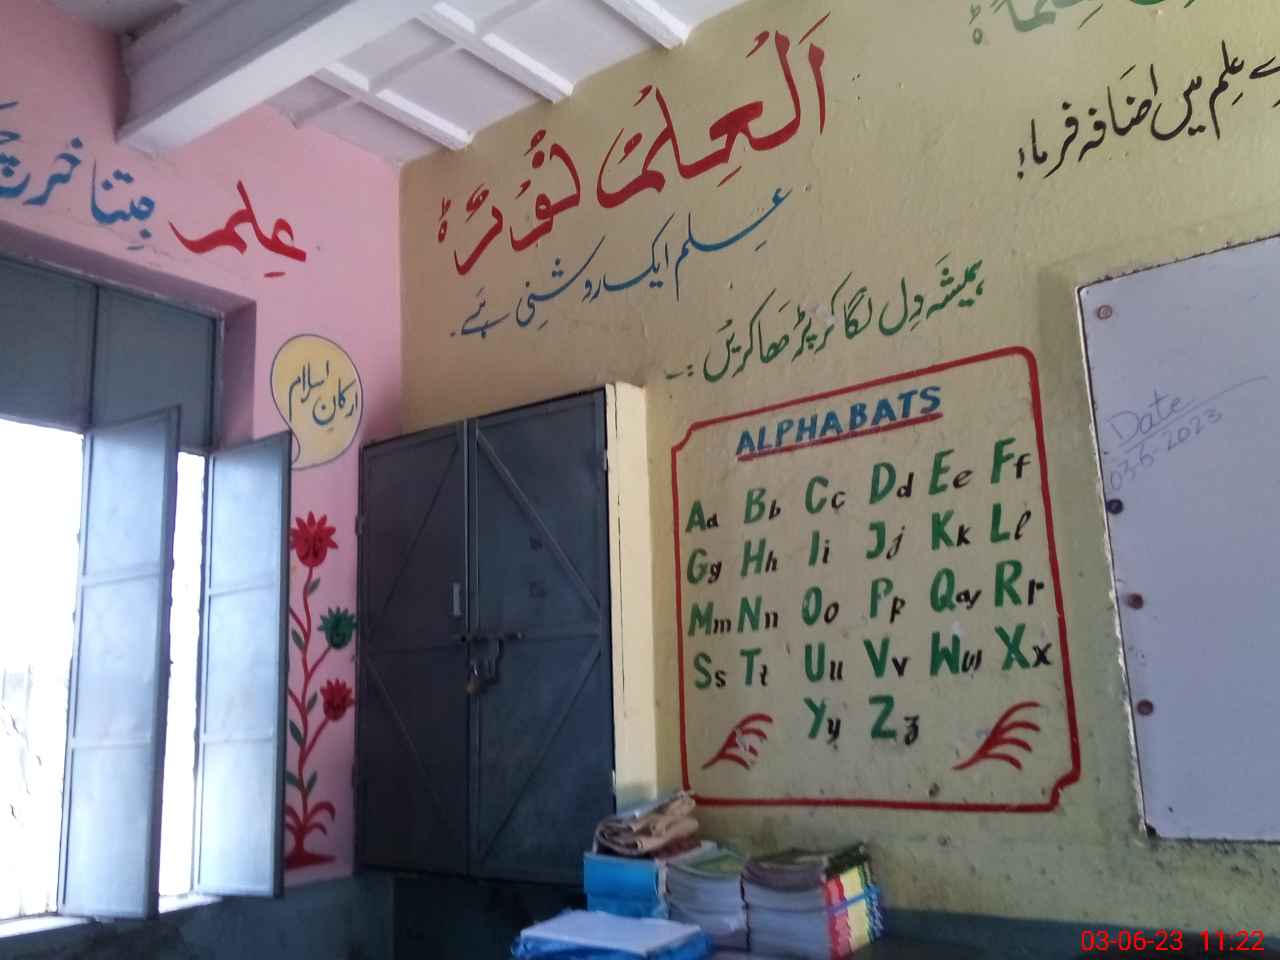 علم جتنا خرچ
ارکانِ اسلام
اَلْعِلْمُ نُوْرٌ
علم ایک روشنی ہے۔
ہمیشہ دِل لگا کر پڑھا کریں :۔
علِم میں اضَافہ فرما!
ALPHABATS
Aa Bb Cc Dd Ee Ff
Gg Hh Ii Jj Kk Ll
Mm Nn Oo Pp Qq Rr
Ss Tt Uu Vv Ww Xx
Yy Zz
Date
03-6-2023
03-06-23 11:22